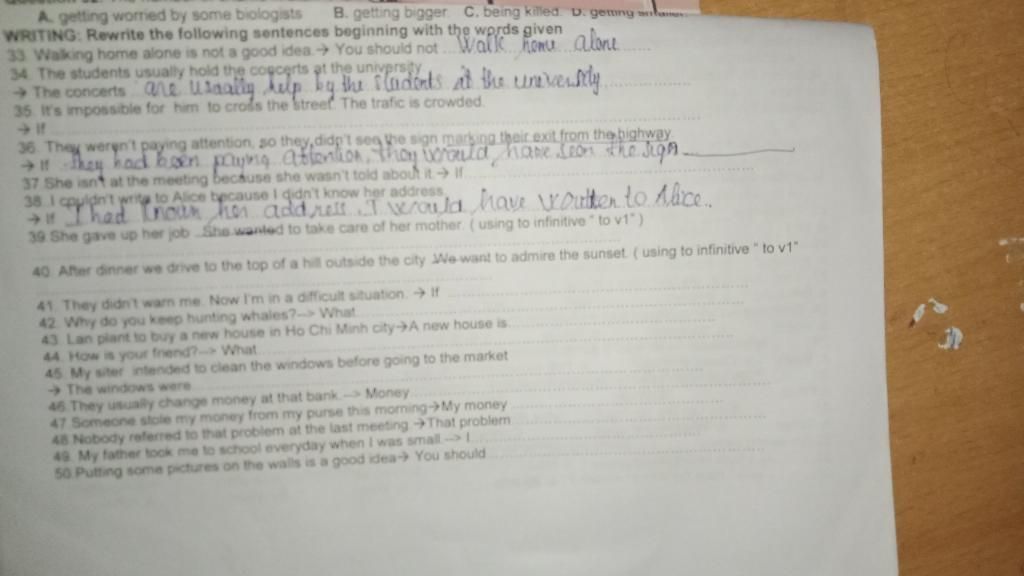 A. getting worried by some biologists B. getting bigger. C. being killed. D. getting smaller.
WRITING: Rewrite the following sentences beginning with the words given
33. Walking home alone is not a good idea → You should not walk home alone
34. The students usually hold the concerts at the university
→ The concerts are usually help by the students at the university
35. It's impossible for him to cross the street. The trafic is crowded.
→ If
36. They weren't paying attention, so they didn't see the sign marking their exit from the highway.
→ If they had been paying attention, they would have seen the sign
37 She isn't at the meeting because she wasn't told about it → If
38. I couldn't write to Alice because I didn't know her address.
→ If I had known her address, I would have written to Alice.
39 She gave up her job. She wanted to take care of her mother. ( using to infinitive " to v1")
40. After dinner we drive to the top of a hill outside the city. We want to admire the sunset. ( using to infinitive " to v1"
41. They didn't warn me. Now I'm in a difficult situation. → If
42. Why do you keep hunting whales?--> What
43. Lan plant to buy a new house in Ho Chi Minh city→A new house is
44. How is your friend?--> What
45. My siter intended to clean the windows before going to the market
→ The windows were
46.They usually change money at that bank.--> Money
47 Someone stole my money from my purse this morning→My money
48.Nobody referred to that problem at the last meeting.→That problem
49. My father took me to school everyday when I was small.--> I
50.Putting some pictures on the walls is a good idea→ You should